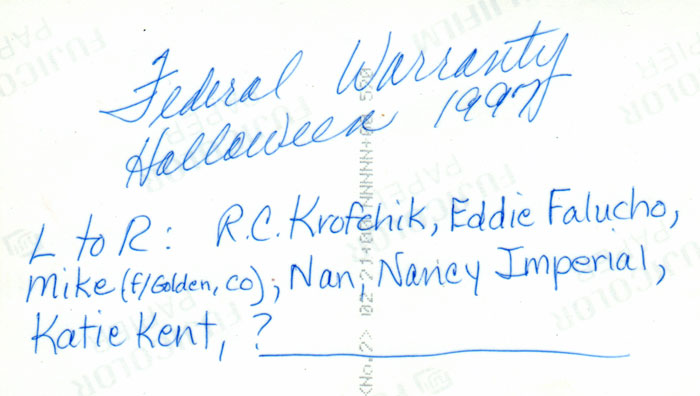 Federal Warranty
Halloween 1997
L to R: R.C. Krofchik, Eddie Falucho,
Mike (f/Golden, CO), Nan, Nancy Imperial,
Katie Kent, ? ____________
FUJICOLOR
PAPER
FUJIFILM